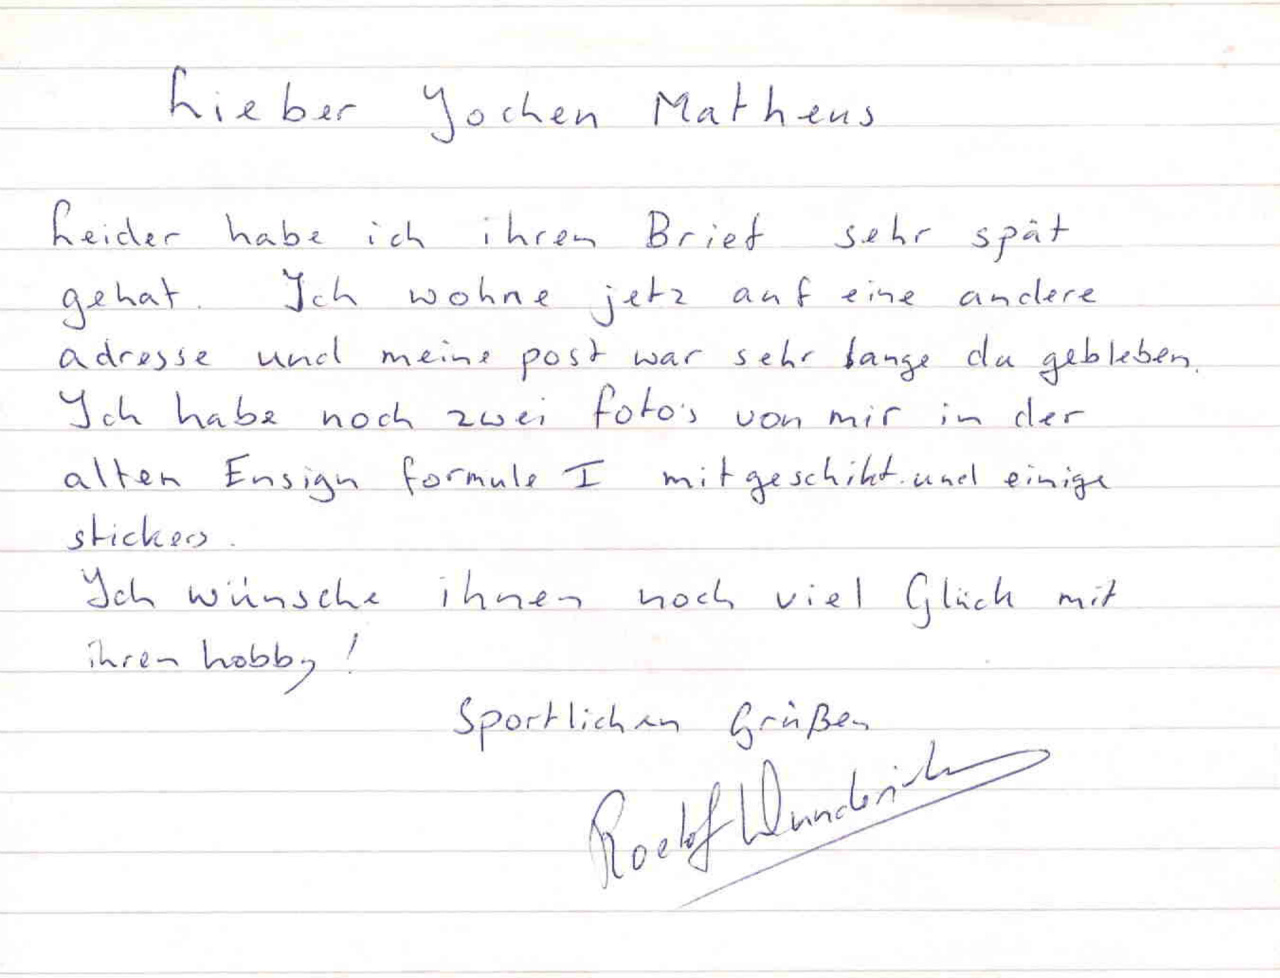 Lieber Jochen Matheus
Leider habe ich ihren Brief sehr spät
gehat. Ich wohne jetz auf eine andere
adresse und meine post war sehr lange da gebleben.
Ich habe noch zwei foto's von mir in der
alten Ensign formule I mitgeschikt und einige
stickers.
Ich wünsche ihnen noch viel Glück mit
ihren hobby!
Sportlichen Grüßen
Roelof Wunderink